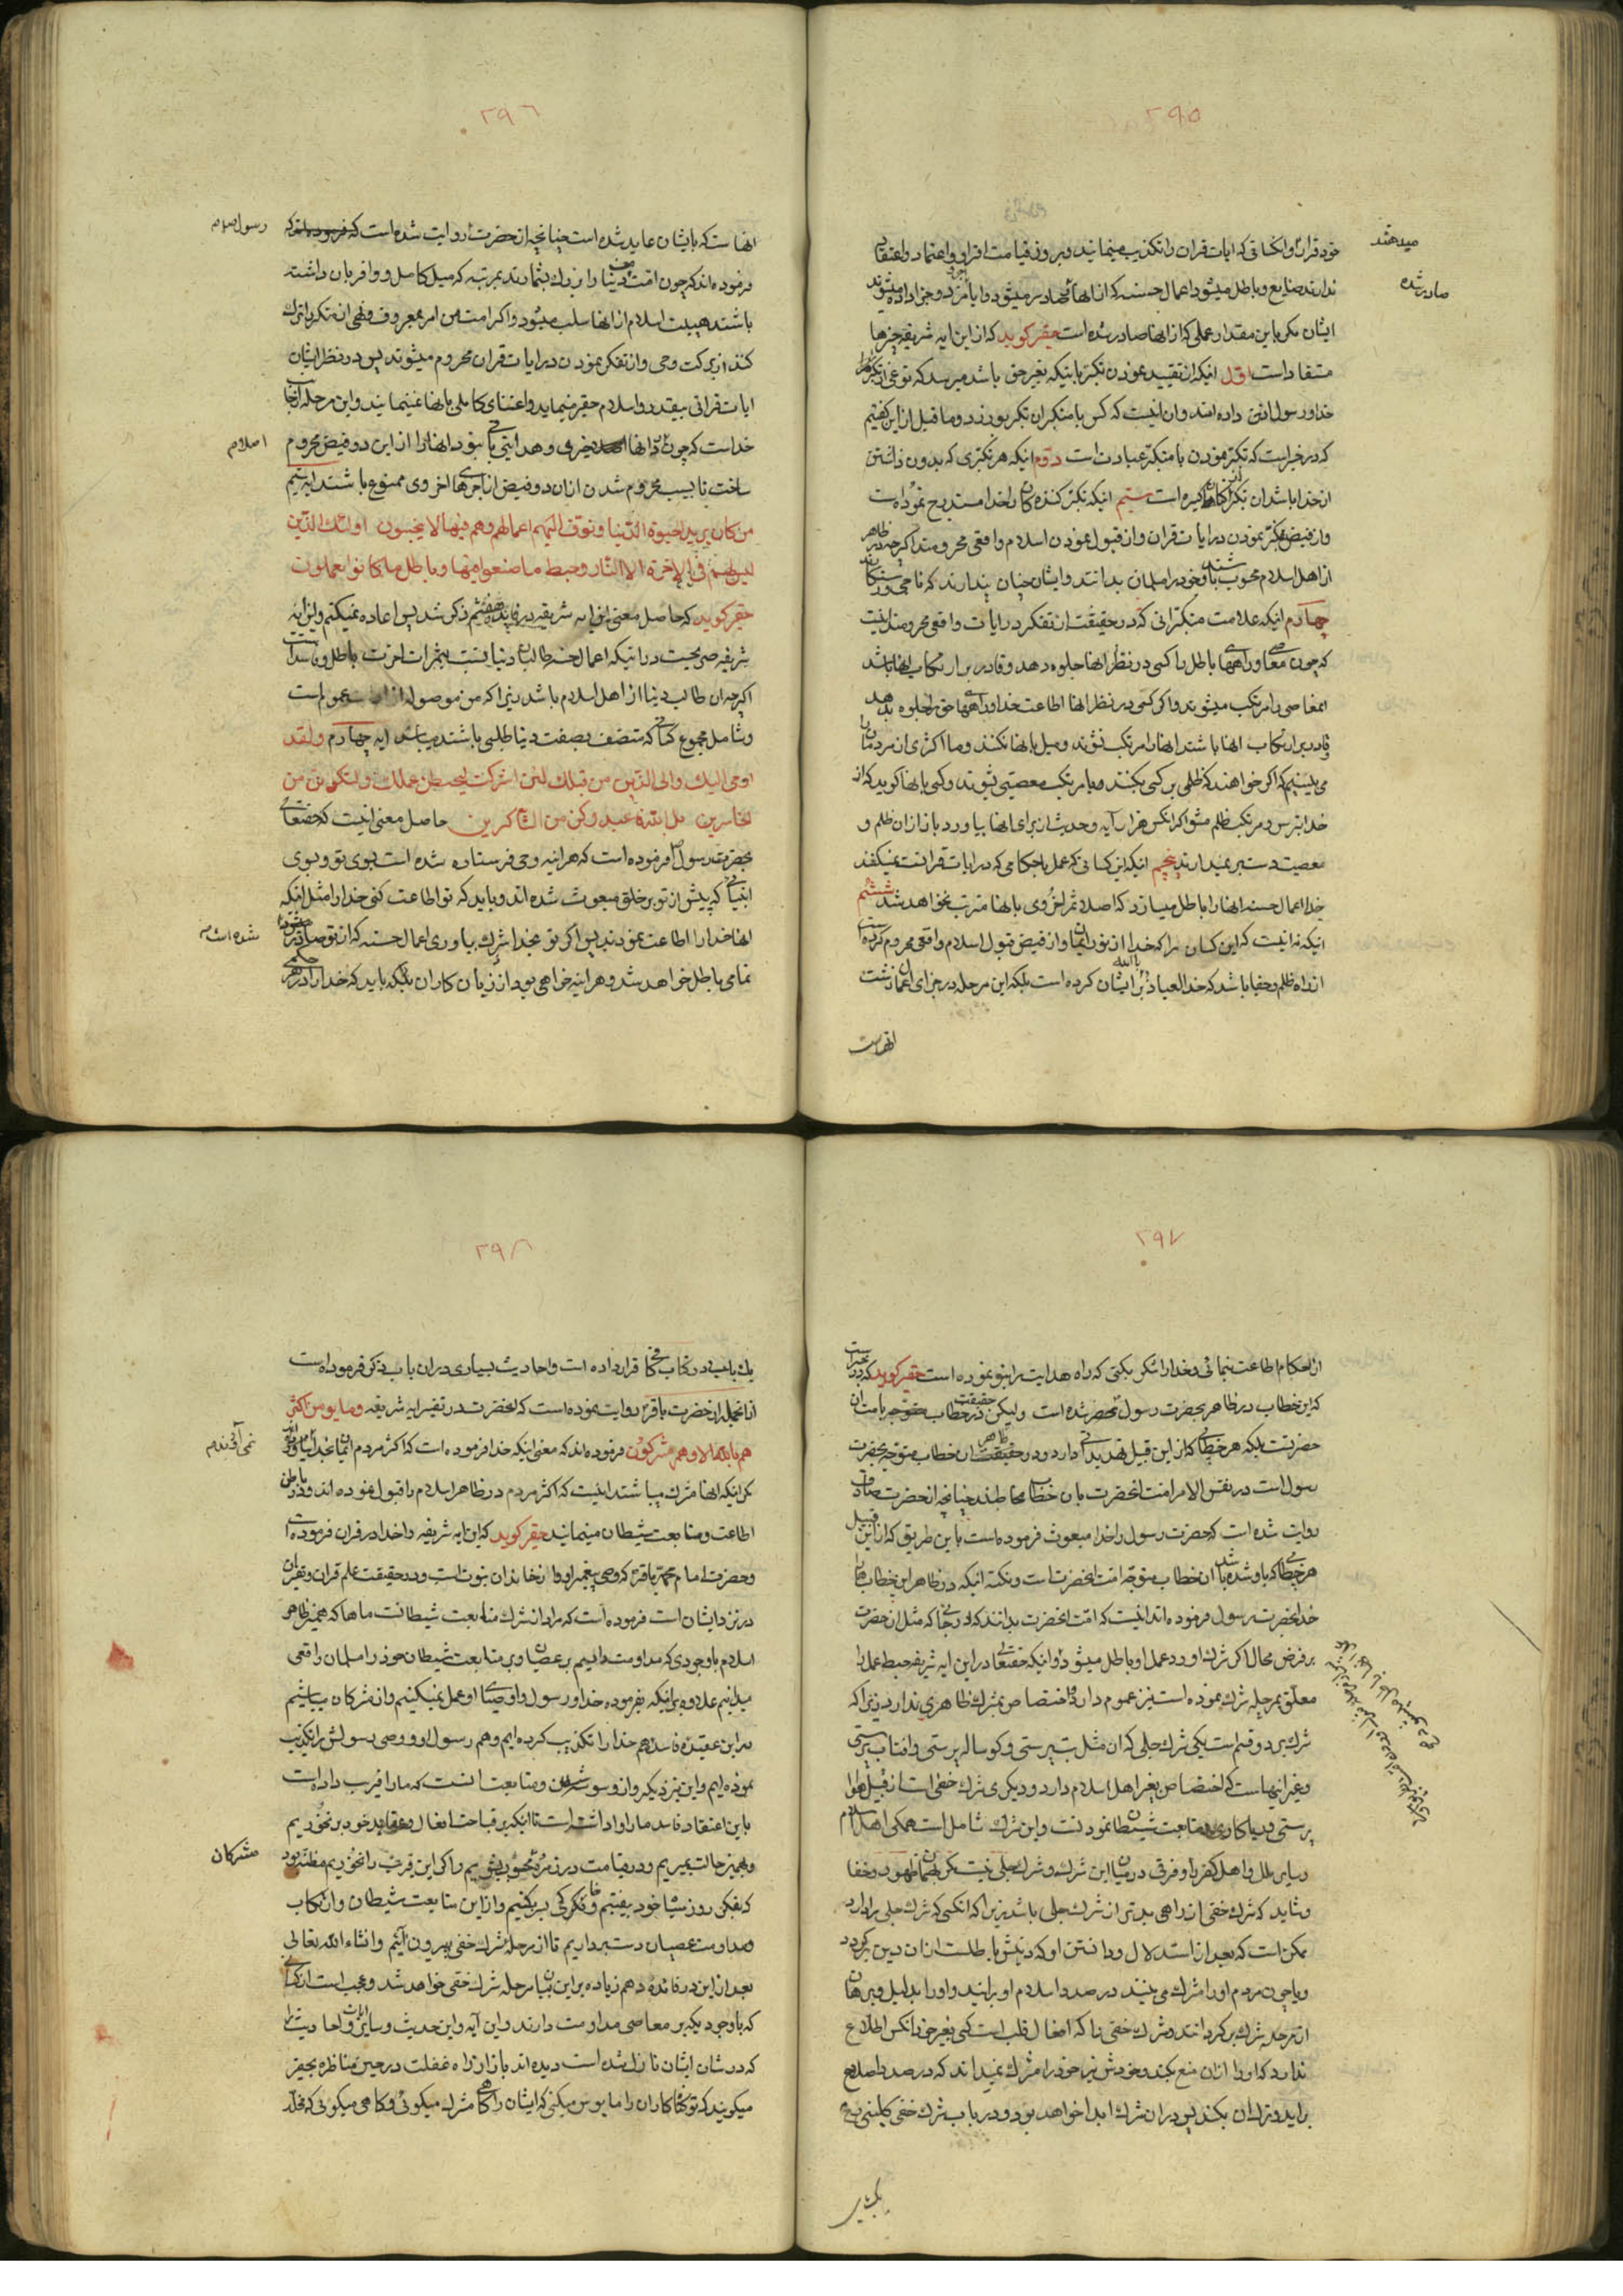 ٢٩٥
خود قرار و انکسانی که ایات قران را تکذیب مینمایند و بروز قیامت اقرار و اعتماد و اعتقاد
میدهند
ندارند ضایع و باطل میشود اعمال حسنه که از انها صادر میشود و داده میشوند
صادر شده
ایشان مکر باین مقدار عملی که از انها صادر شده است حقیر کوید که از این ایه شریفه چیزها
مستفاد است اول اینکه از تقیید نمودن تکبر باینکه بغیر حق باشد میرسد که نوعی از تکبر را
خدا و رسول اذن داده اند و ان اینست که کس با متکبران تکبر بورزد و ما قبل از این کفتیم
که در خبر است که تکبر نمودن با متکبر عبادت است دوم اینکه هر تکبری که بدون داشتن
از خدا باشد ان تکبر از کناهان کبیره است سیم اینکه تکبر کننده کان را خدا مستدرج نموده است
و از فیض تفکر نمودن در ایات قران و از قبول نمودن اسلام واقعی محرومند اکرچه در ظاهر
از اهل اسلام محسوب باشند و خود را مسلمان بدانند و ایشان چنان پندارند که ناجی و رستکارند
چهارم اینکه علامت متکبرانی که در حقیقت از تفکر در ایات واقعی محرومند اینست
که چون معاصی و راههای باطل را کسی در نظر انها جلوه دهد و قادر بر ارتکاب انها باشند
انمعاصی را مرتکب میشوند و اکر کسی در نظر انها اطاعت خدا و راههای حق را جلوه بدهد
و قادر بر ارتکاب انها باشند انها را مرتکب نشوند و میل بانها نکنند و ما اکثری از مردمان
می بینیم که اکر خواهند که ظلمی بر کسی بکنند و یا مرتکب معصیتی بشوند و کسی بانها کوید که از
خدا بترس و مرتکب ظلم مشو اکر انکس هزار آیه و حدیث از برای انها بیاورد باز از ان ظلم و
معصیت دست بر نمیدارند پنجم اینکه این کسانی که عمل باحکامی که در ایات قرانست نمیکنند
خدا اعمال حسنه انها را باطل میسازد که اصلا ثمر اخروی بانها مترتب نخواهد شد ششم
اینکه نه اینست که این کسان را که خدا از نور ایمان و از فیض قبول اسلام واقعی محروم کرده است
از راه ظلم و جفا باشد که خدا العیاذ بالله بر ایشان کرده است بلکه این مرحله در جزای اعمال زشت
انهاست
٢٩٦
انها ست که بایشان عاید شده است چنانچه از حضرت روایت شده است که
رسول
فرموده اند که چون امت من دنیا را بزرک بشمارند بمرتبه که میل کامل و وافر بان داشته
باشند هیبت اسلام از انها سلب میشود و اکر امت من امر بمعروف و نهی از منکر را ترک
کنند از برکت وحی و از تفکر نمودن در ایات قران محروم میشوند پس در نظر ایشان
ایات قرانی بیقدر و اسلام حقیر مینماید و اعتنای کاملی بانها نمینمایند و این مرحله از جانب
خداست که چون در انها خیری و هدایتی نبود انها را از این دو فیض محروم
اسلام
ساخت تا بسبب محروم شدن از ان دو فیض از اجرهای اخروی ممنوع باشند ایه سیم
من کان یرید الحیوة الدنیا و نوف الیهم اعمالهم و هم فیها لا یبخسون اولئک الذین
لیس لهم فی الاخرة الا النار و حبط ما صنعوا فیها و باطل ما کانوا یعملون
حقیر کوید که حاصل معنی این ایه شریفه در فایده هفتم ذکر شد پس اعاده نمیکنم و این ایه
شریفه صریحست در اینکه اعمال حسنه طالبان دنیا نسبت بثمرات اخرت باطل و فاسد است
اکرچه ان طالب دنیا از اهل اسلام باشد زیرا که من موصوله از عموم است
و شامل مجموع کسانی که متصف بصفت دنیا طلبی باشند میباشد ایه چهارم و لقد
اوحی الیک و الی الذین من قبلک لئن اشرکت لیحبطن عملک و لتکونن من
الخاسرین بل الله فاعبد و کن من الشاکرین حاصل معنی اینست که حقتعالی
بحضرت رسول فرموده است که هر اینه وحی فرستاده شده است بسوی تو و بسوی
انبیائی که پیش از تو بر خلق مبعوث شده اند و باید که تو اطاعت کنی خدا را مثل اینکه
انها خدا را اطاعت نمودند پس اکر تو بخدا شرک بیاوری اعمال حسنه که از تو صادر میشود
شده است
تمامی باطل خواهد شد و هر اینه خواهی بود از زیان کاران بلکه باید که خدا را در هر
٢٩٧
از احکام اطاعت نمائی و خدا را شکر بکنی که راه هدایت را بتو نموده است حقیر کوید که در خبر است
که این خطاب در ظاهر بحضرت رسول منحصر شده است ولیکن در حقیقت خطاب متوجه بامت ان
حضرتست بلکه هر خطابی که از این قبیل تهدیدات دارد و در ظاهر ان خطاب متوجه بحضرت
رسول است در نفس الامر امت انحضرت بان خطاب مخاطبند چنانچه از حضرت صادق
روایت شده است که حضرت رسول را خدا مبعوث فرموده است باین طریق که از این قبیل
هر خطابی که باو شده باشد ان خطاب متوجه امت انحضرت است و نکته اینکه در ظاهر این خطاب را
خدا بحضرت رسول فرموده اند اینست که امت انحضرت بدانند که در جائی که مثل ان حضرت
بر فرض محال اکر شرک اورد عمل او باطل میشود و اینکه حقتعالی در این ایه شریفه حبط عمل را
معلق بمرحله شرک نموده است نیز عموم دارد و اختصاص بشرک ظاهری ندارد زیرا که
شرک بر دو قسم است یکی شرک جلی که ان مثل بت پرستی و کوساله پرستی و افتاب پرستی
و غیر اینهاست که اختصاص بغیر اهل اسلام دارد و دیکری شرک خفی است از قبیل هوا
پرستی و ریا کاری و متابعت شیطان نمودنست و این شرک شامل است همکی اهل اسلام
و سایر ملل و اهل کفر را و فرقی در میان این شرک و شرک جلی نیست مکر بهمان ظهور و خفا
و شاید که شرک خفی از راهی بدتر از شرک جلی باشد زیرا که انکسی که شرک جلی را دارد
ممکن است که بعد از استدلال و دانستن او که دینش باطلست از ان دین برکردد
و یا چون مردم او را مشرک می بینند در صدد اسلام او برایند و او را بدلیل و برهان
از مرحله شرک برکردانند و شرک خفی را که افعال قلب است کسی بغیر خود انکس اطلاع
ندارد که او را از ان منع بکند و خودش نیز خود را مشرک نمیداند که در صدد اصلاح
براید و ترک ان بکند پس در ان شرک ابدا خواهد بود و در باب شرک خفی کلینی
یک باب
٢٩٨
یک باب در کتاب کافی قرار داده است و احادیث بسیاری در ان باب ذکر فرموده است
از انجمله از حضرت باقر روایت نموده است که انحضرت در تفسیر ایه شریفه و ما یومن اکثر
هم بالله الا و هم مشرکون فرموده اند که معنی اینکه خدا فرموده است که اکثر مردم ایمان بخدا
نمی آورند
مکر اینکه انها مشرک میباشند اینست که اکثر مردم در ظاهر اسلام را قبول نموده اند و در باطن
اطاعت و متابعت شیطان مینمایند حقیر کوید که این ایه شریفه را خدا در قران فرموده است
و حضرت امام محمد باقر که وصی پیغمبر او و از خاندان نبوت است و در حقیقت علم قران و تفسیر ان
در نزد ایشان است فرموده است که مراد از شرک متابعت شیطانست ماها که بهمین ظاهر
اسلام با وجودی که مداومت داریم بر عصیان و بر متابعت شیطان خود را مسلمان واقعی
میدانیم علاوه بر اینکه بفرموده خدا و رسول و اوصیای او عمل نمیکنیم و از مشرکان میباشیم
در این عقیده فاسده هم خدا را تکذیب کرده ایم و هم رسول او و وصی رسولش را تکذیب
نموده ایم و این نیز دیکر از وسوسه شیطان و متابعت انست که ما را فریب داده است
باین اعتقاد فاسد ما را واداشته است تا اینکه بر قباحت افعال و عقاید خود بر نخوریم
و بهمین حالت بمیریم و در قیامت در زمره محشور بشویم و اکر این فریب را نخوریم مظنه بود
مشرکان
که بفکر روز سیاه خود بیفتیم و فکری بر بکنیم و از این متابعت شیطان و ارتکاب
و مداومت عصیان دست برداریم تا از مرحله شرک خفی بیرون آئیم و انشاء الله تعالی
بعد از این در فائده دهم زیاده بر این بیان مرحله شرک خفی خواهد شد و عجب است از کسانی
که با وجودیکه بر معاصی مداومت دارند و این آیه و این حدیث و سایر ایات و احادیث را
که در شان ایشان نازل شده است دیده اند باز از راه غفلت در حین مناظره بحقیر
میکویند که تو کناه کاران را مایوس میکنی که ایشان را کاهی مشرک میکوئی و کاهی میکوئی که مخلد